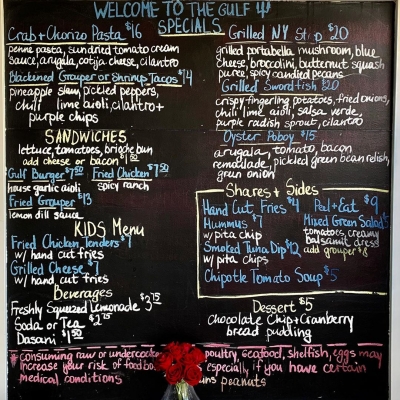 WELCOME TO THE GULF
SPECIALS
Crab + Chorizo Pasta $16
penne pasta, sundried tomato cream
sauce, arugula, cotija cheese, cilantro
Blackened Grouper or Shrimp Tacos $14
pineapple slaw, pickled peppers,
chili lime aioli, cilantro +
purple chips
SANDWICHES
lettuce, tomatoes, brioche bun
add cheese or bacon $1.50
Gulf Burger $7.50 Fried Chicken $7.50
house garlic aioli spicy ranch
Fried Grouper $13
lemon dill sauce
KIDS Menu
Fried Chicken Tenders $7
w/ hand cut fries
Grilled Cheese $7
w/ hand cut fries
Beverages
Freshly Squeezed Lemonade $3.75
Soda or Tea $2.75
Dasani $1.50
Grilled NY Strip $20
grilled portabella mushroom, blue
cheese, broccolini, butternut squash
puree, spicy candied pecans
Grilled Swordfish $20
crispy fingerling potatoes, fried onions,
chili lime aioli, salsa verde,
purple radish sprout, cilantro
Oyster Poboy $15
arugala, tomato, bacon
remoulade, pickled green bean relish,
green onion
Shares + Sides
Hand Cut Fries $4
Hummus $7
w/ pita chip
Smoked Tuna Dip $12
w/ pita chips
Chipotle Tomato Soup $5
Peel + Eat $9
Mixed Green Salad $5
tomatoes, creamy
balsamic dress
add grouper $8
Dessert $5
chocolate Chip + Cranberry
bread pudding
* consuming raw or undercooked poultry, seafood, shellfish, eggs may
increase your risk of food bo especially if you have certain
medical conditions peanuts